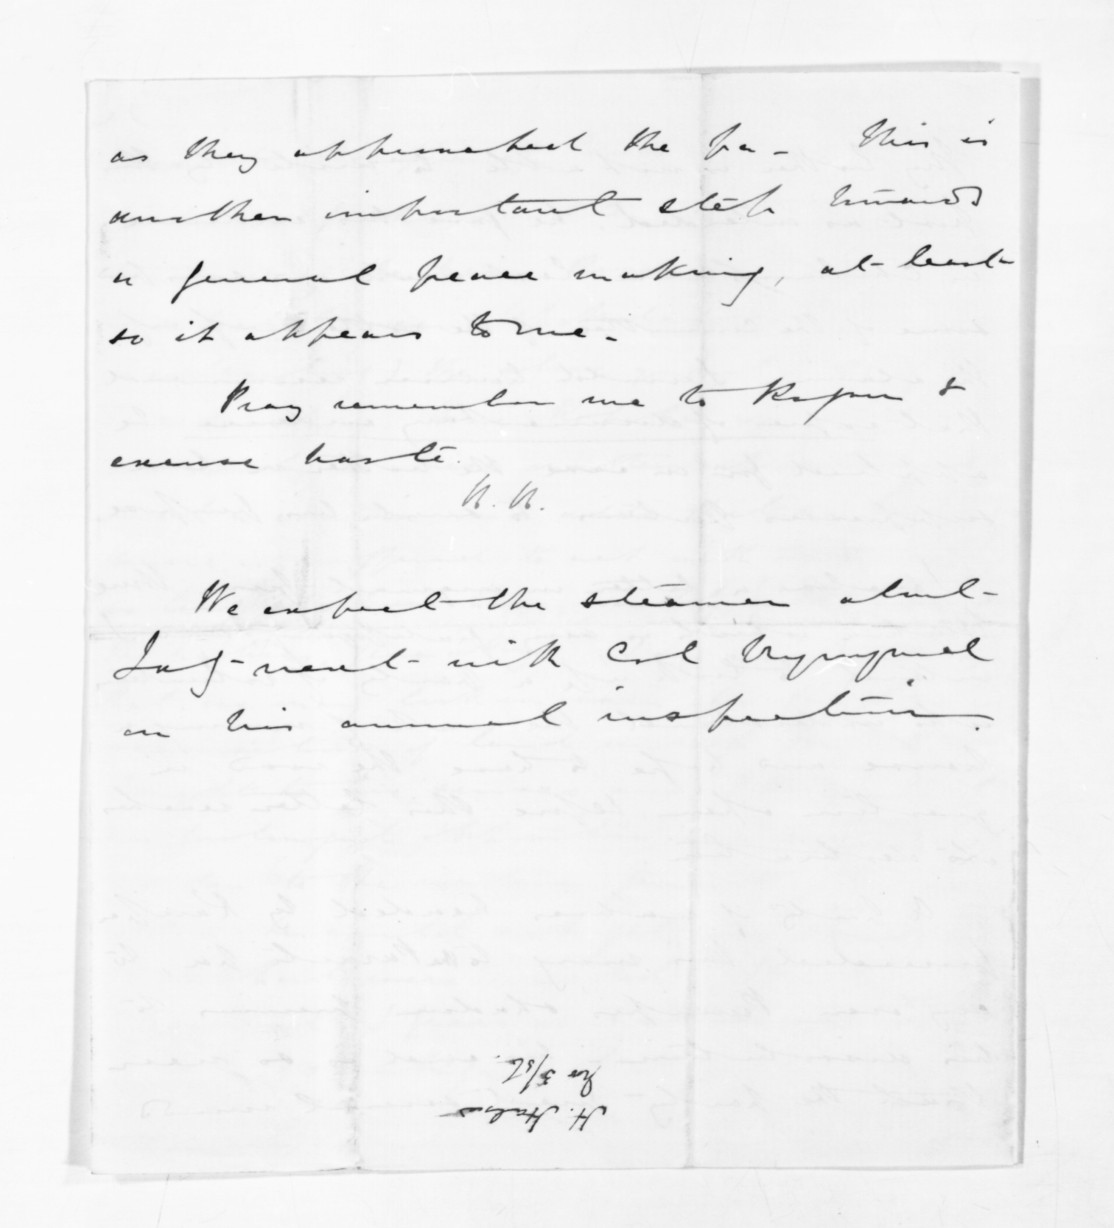 as they approached the pa - This is
another important step towards
a general peace making, at least
so it appears to me -
Pray remember me to &
excuse haste.
We expect the steamer about
next with Col Wynyard
on his annual inspection.
H. Halse